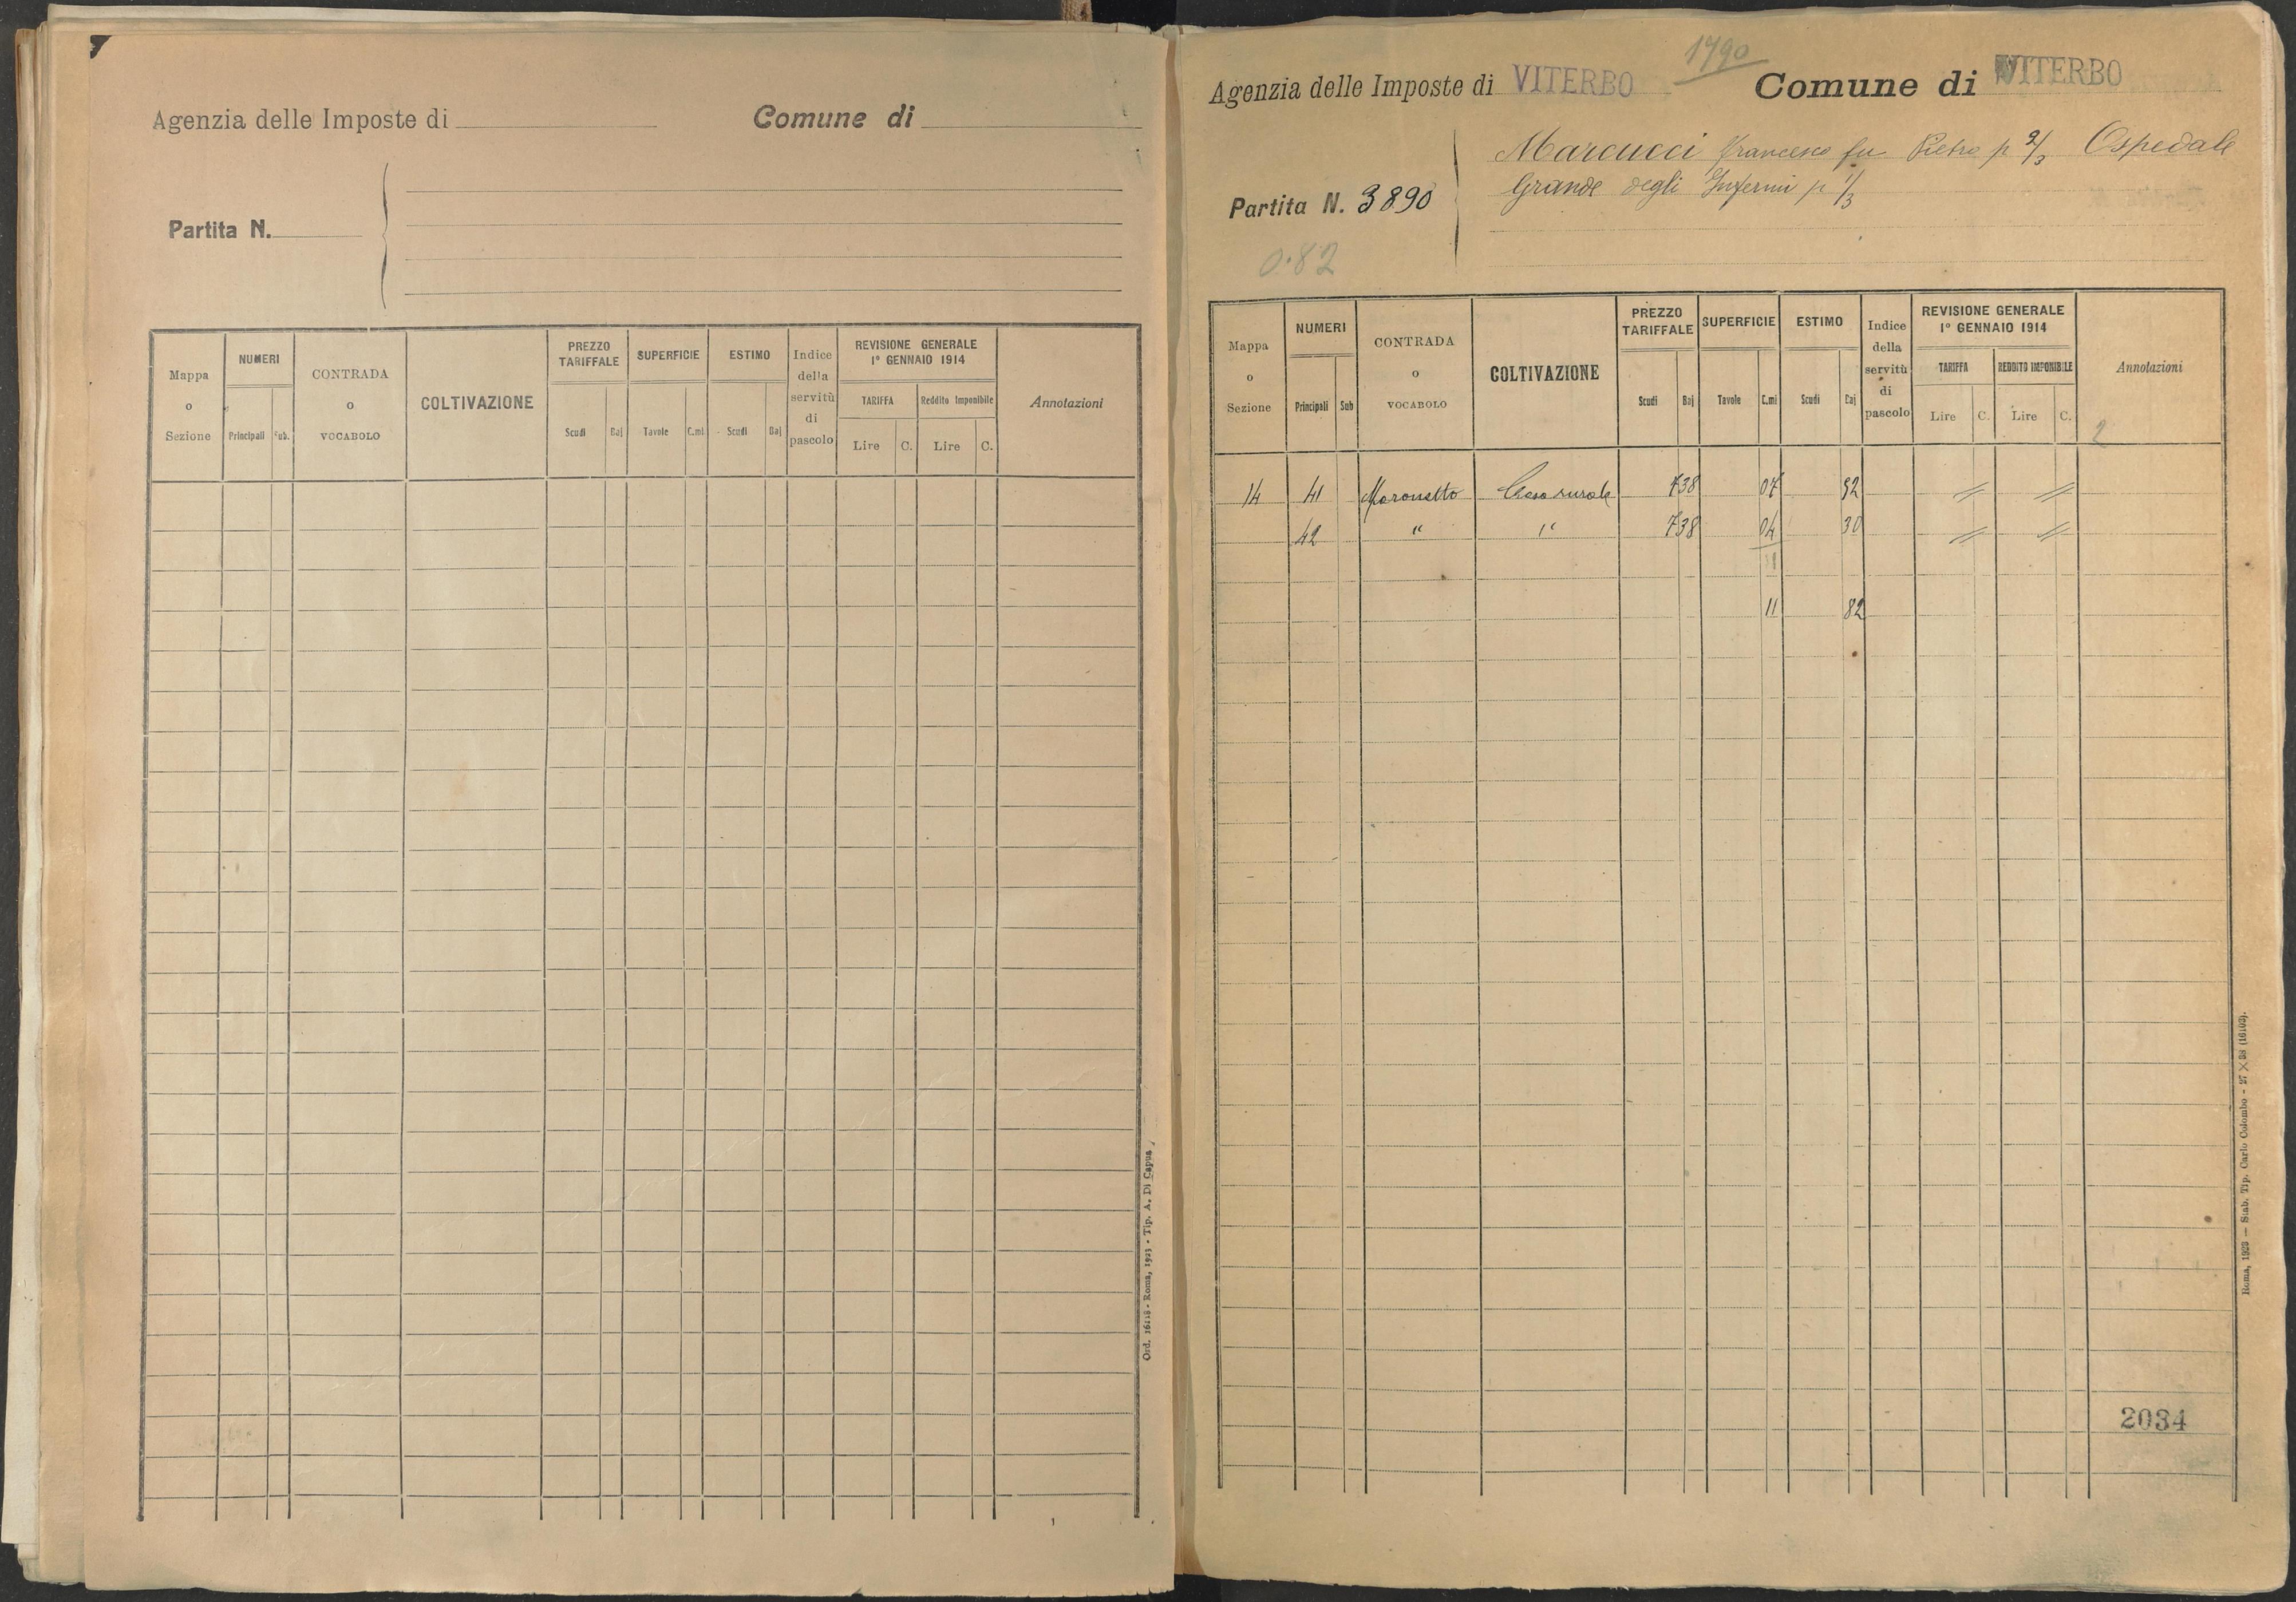 Agenzia delle Imposte di
Comune di
Partita N.
Mappa o Sezione
NUMERI
Principali
Sub.
CONTRADA o VOCABOLO
COLTIVAZIONE
PREZZO TARIFFALE
Scudi
Baj
SUPERFICIE
Tavole
C.mi
ESTIMO
Scudi
Baj
Indice della servitù di pascolo
REVISIONE GENERALE
1° GENNAIO 1914
TARIFFA
Lire
C.
Reddito Imponibile
Lire
C.
Annotazioni
Ord. 16118 - Roma, 1923 - Tip. A. Di Capua
1790
Agenzia delle Imposte di VITERBO
Comune di VITERBO
Partita N. 3890
Marcucci Francesco fu Pietro p 2/3 Ospedale
Grande degli Infermi p 1/3
0.82
Mappa o Sezione
NUMERI
Principali
Sub
CONTRADA o VOCABOLO
COLTIVAZIONE
PREZZO TARIFFALE
Scudi
Baj
SUPERFICIE
Tavole
C.mi
ESTIMO
Scudi
Baj
Indice della servitù di pascolo
REVISIONE GENERALE
1° GENNAIO 1914
TARIFFA
Lire
C.
REDDITO IMPONIBILE
Lire
C.
Annotazioni
2
14 41 Casa rurale 738 07 52 // //
42 " " 738 04 30 // //
11
11 82
2034
Roma, 1923 — Stab. Tip. Carlo Colombo - 27 X 38 (16103).